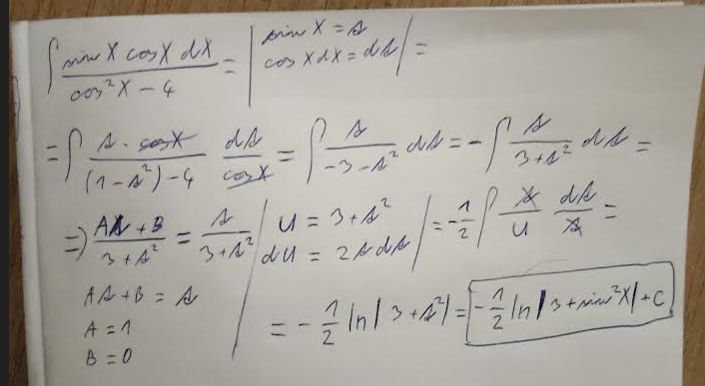 ∫ sin x cos x dx / cos²x − 4 = | sin x = s, cos x dx = ds | =
= ∫ s · cos x / (1 − s²) − 4 ds / cos x = ∫ s / −3 − s² ds = − ∫ s / 3 + s² ds =
⇒) As + B / 3 + s² = s / 3 + s² | u = 3 + s², du = 2s ds | = −1/2 ∫ s / u ds / s =
As + B = s
A = 1
B = 0
= −1/2 ln|3 + s²| = −1/2 ln|3 + sin²x| + C